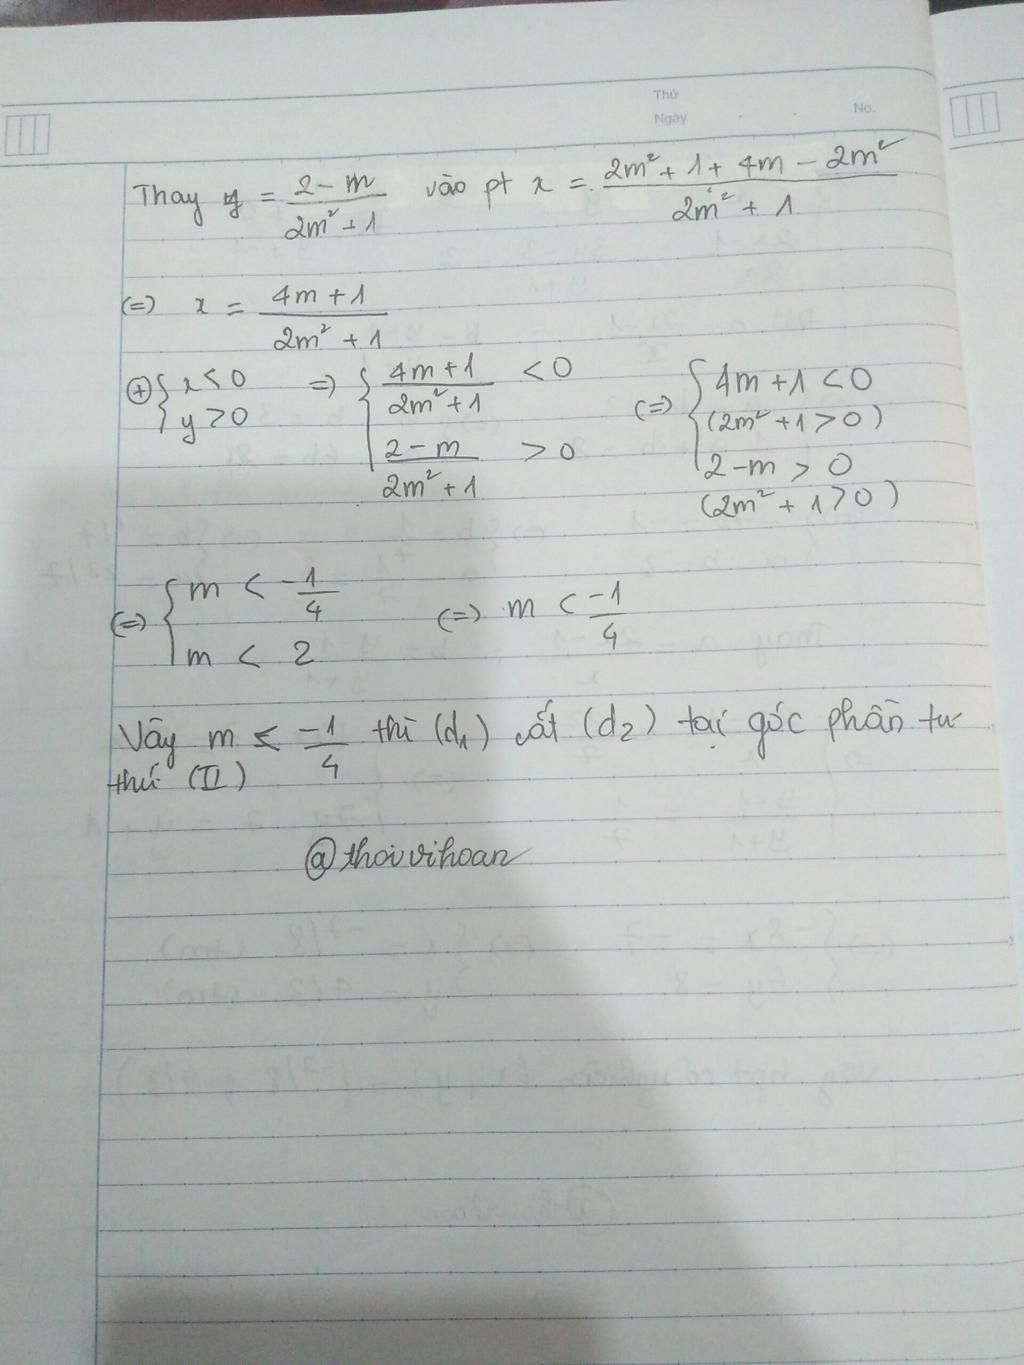 Thứ
Ngày
No.
Thay y = \frac{2-m}{2m^2+1} vào pt x = \frac{2m^2+1+4m-2m^2}{2m^2+1}
(=) x = \frac{4m+1}{2m^2+1}
(+) { x < 0 ; y > 0 => { \frac{4m+1}{2m^2+1} < 0 ; \frac{2-m}{2m^2+1} > 0 (=) { 4m+1 < 0 (2m^2+1 > 0) ; 2-m > 0 (2m^2+1 > 0)
(=) { m < \frac{-1}{4} ; m < 2 (=) m < \frac{-1}{4}
Vậy m ≤ \frac{-1}{4} thì (d1) cắt (d2) tại góc phần tư
thứ (II)
@thoivihoan